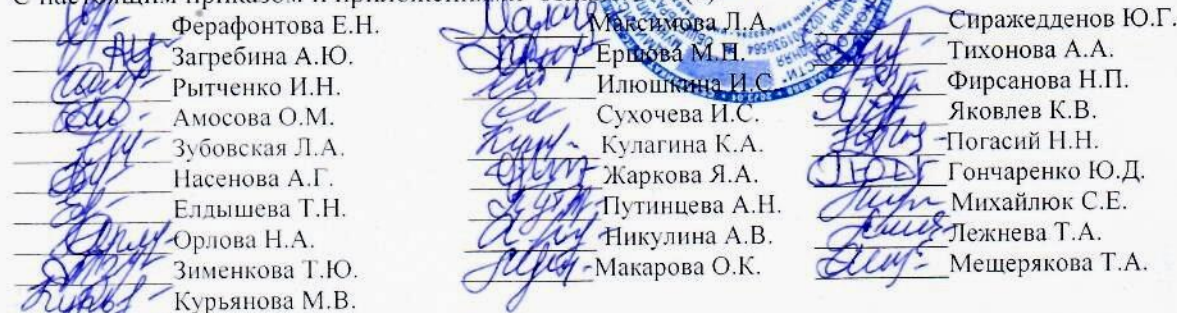 С настоящим приказом и приложениями
Ферафонтова Е.Н.
Загребина А.Ю.
Рытченко И.Н.
Амосова О.М.
Зубовская Л.А.
Насенова А.Г.
Елдышева Т.Н.
Орлова Н.А.
Зименкова Т.Ю.
Курьянова М.В.
Максимова Л.А.
Ершова М.Н.
Илюшкина И.С.
Сухочева И.С.
Кулагина К.А.
Жаркова Я.А.
Путинцева А.Н.
Никулина А.В.
Макарова О.К.
Сиражедденов Ю.Г.
Тихонова А.А.
Фирсанова Н.П.
Яковлев К.В.
Погасий Н.Н.
Гончаренко Ю.Д.
Михайлюк С.Е.
Лежнева Т.А.
Мещерякова Т.А.